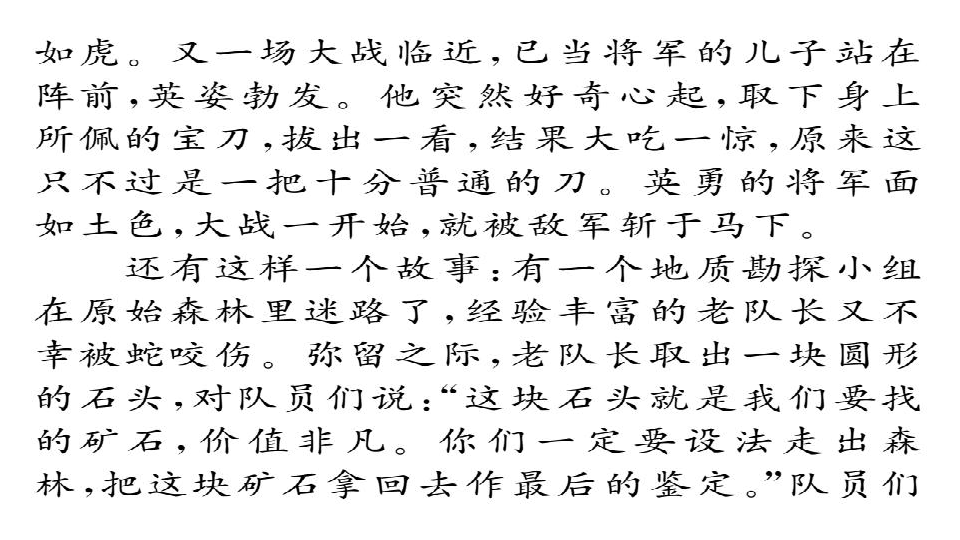 如虎。又一场大战临近,已当将军的儿子站在
阵前,英姿勃发。他突然好奇心起,取下身上
所佩的宝刀,拔出一看,结果大吃一惊,原来这
只不过是一把十分普通的刀。英勇的将军面
如土色,大战一开始,就被敌军斩于马下。
还有这样一个故事:有一个地质勘探小组
在原始森林里迷路了,经验丰富的老队长又不
幸被蛇咬伤。弥留之际,老队长取出一块圆形
的石头,对队员们说:“这块石头就是我们要找
的矿石,价值非凡。你们一定要设法走出森
林,把这块矿石拿回去作最后的鉴定。”队员们